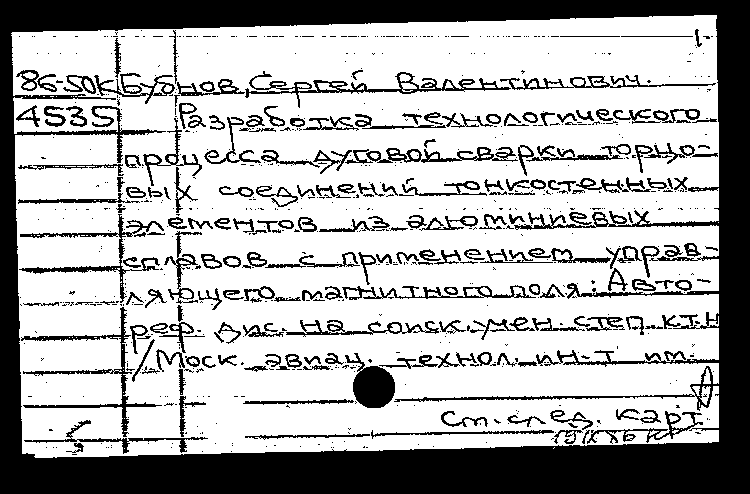 1-
86-50к Бубнов, Сергей Валентинович.
4535 Разработка технологического
процесса дуговой сварки торцо-
вых соединений тонкостенных
элементов из алюминиевых
сплавов с применением управ-
ляющего магнитного поля: Авто-
реф. дис. на соиск. учен. степ. к.т.н
/Моск. авиац. технол. ин-т им.
См. след. карт